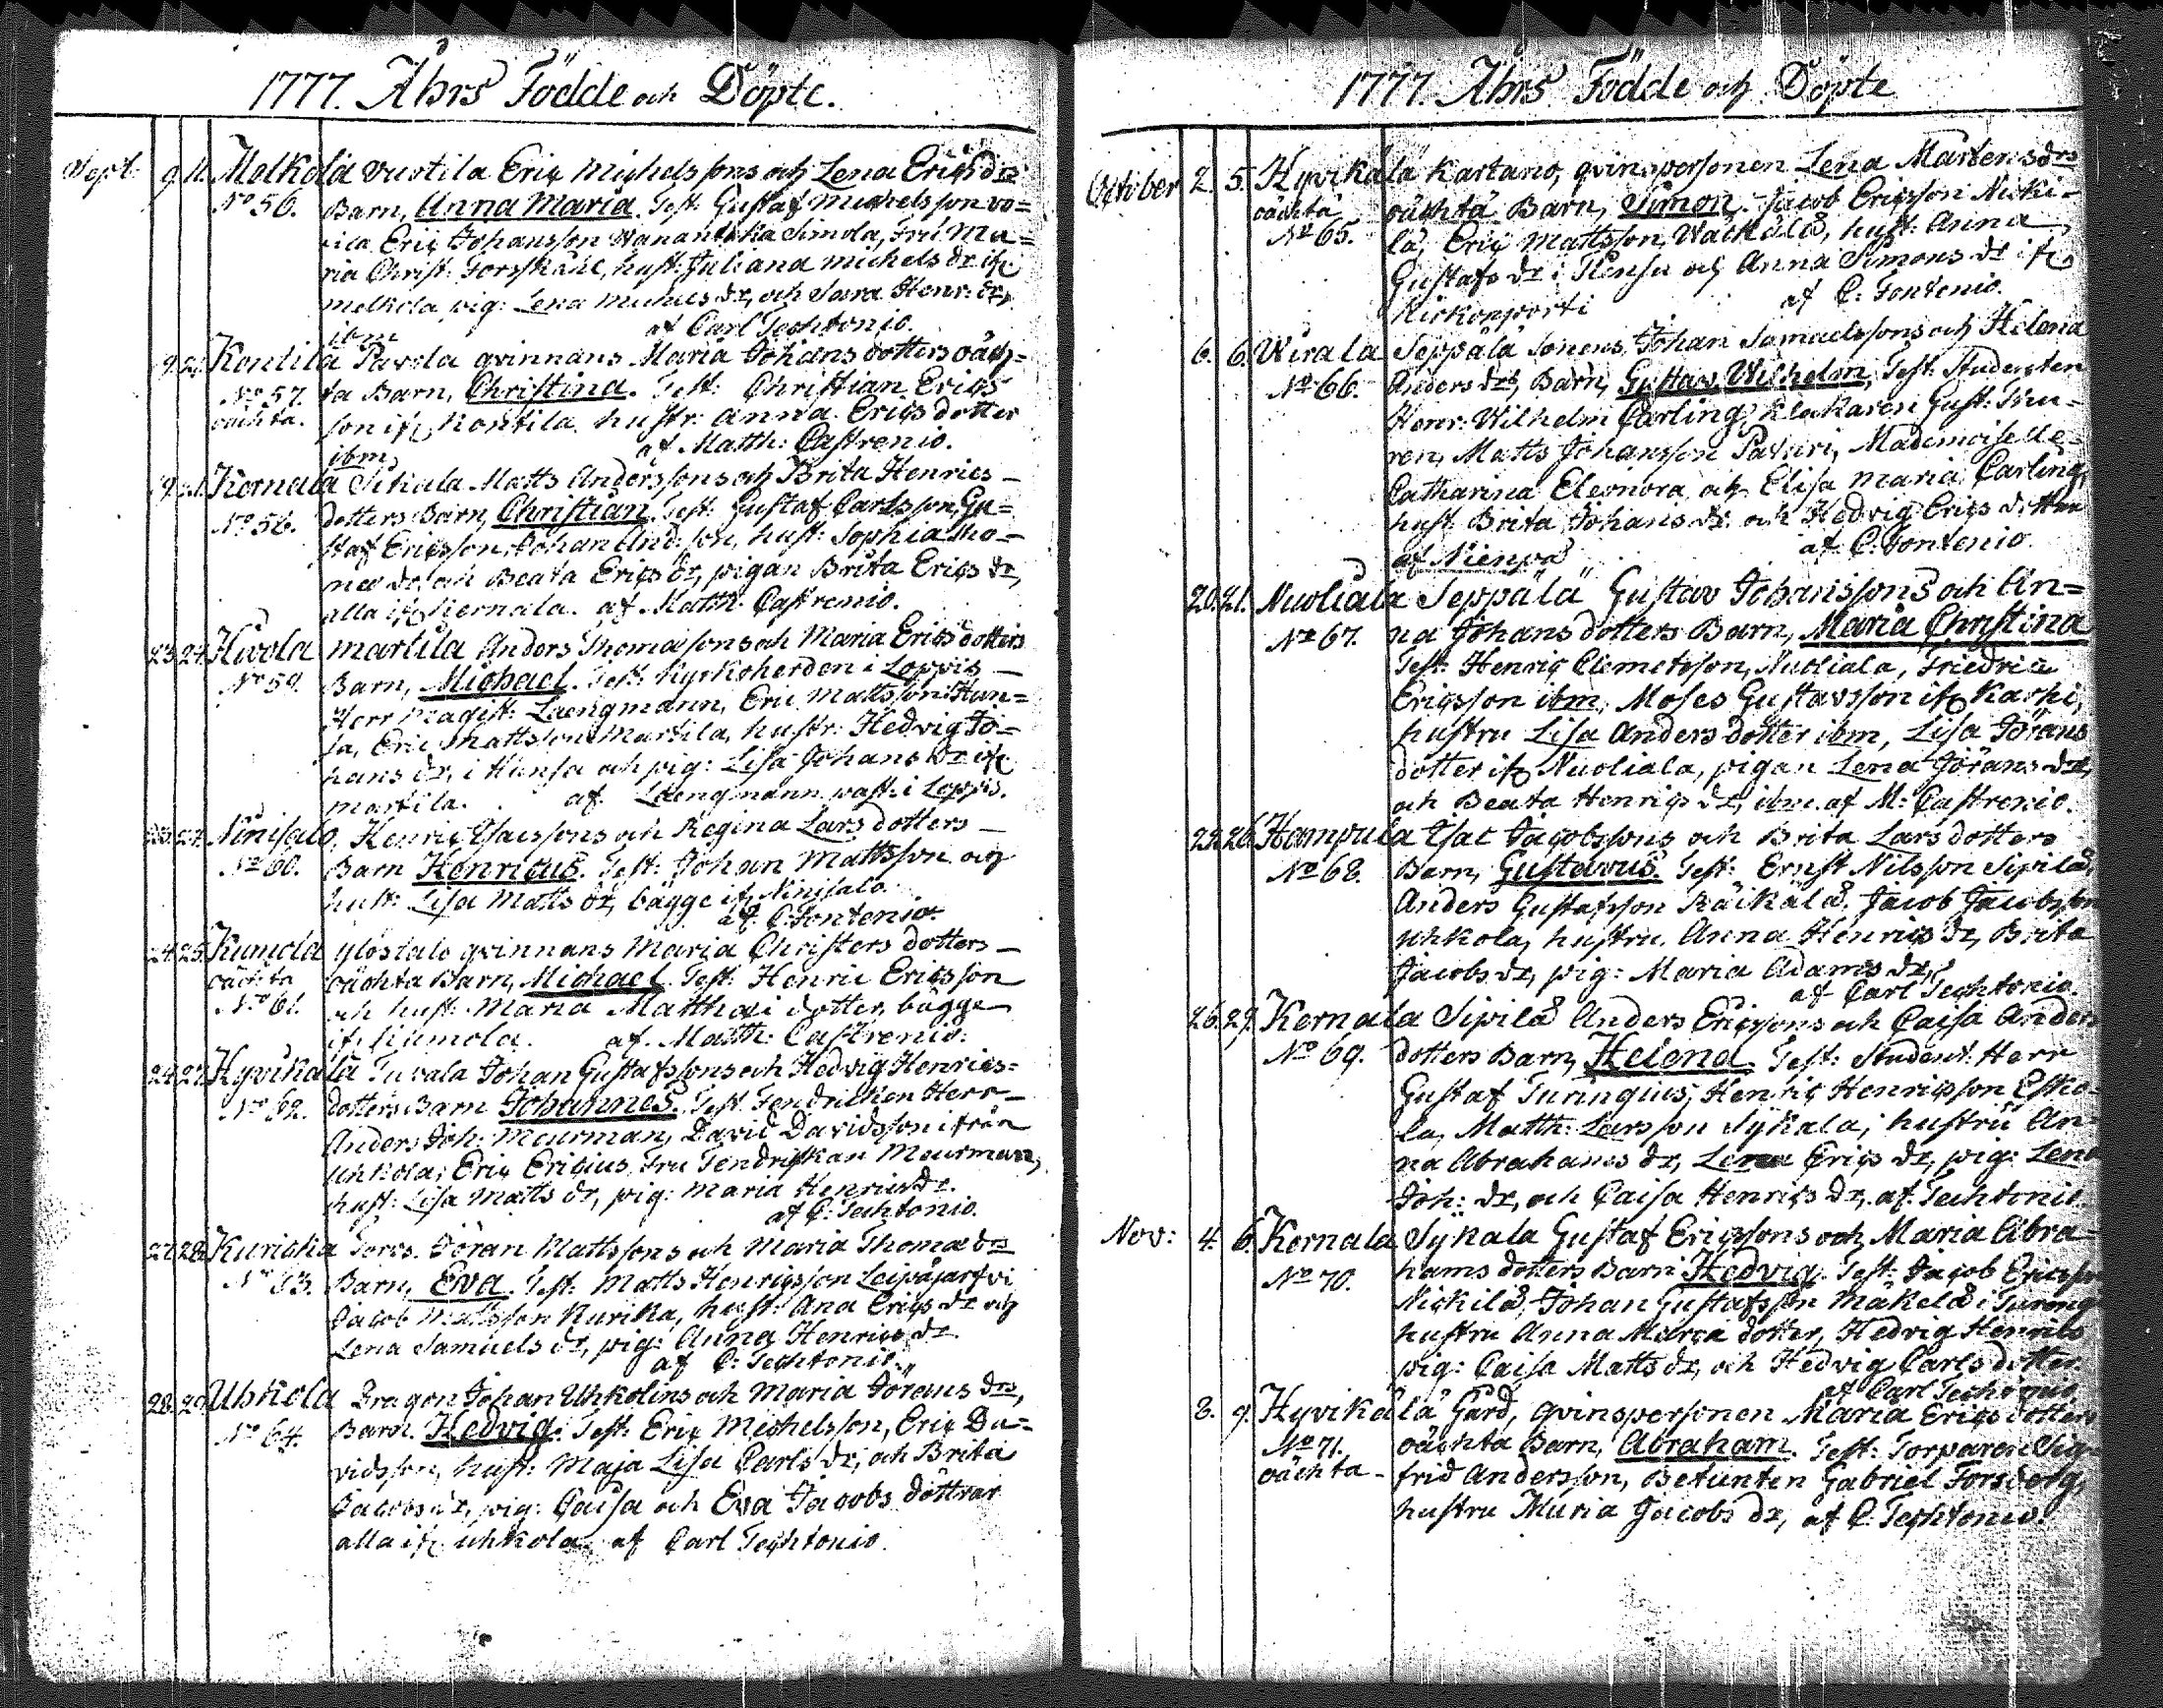 1777. Åhrs Födde och Döpte.
Sept. 9. 11. Melkola Vuotila Eric Michelssons och Lena Erics dr
No 56. Barn, Anna Maria. Test: Gustaf Michelsson
Eric Johansson Simola, Fru Ma=
ria Christ: Forsskåhl, hust: Juliana Michels dr ifr
Melkola, pig: Lena Michels dr, och Sara Henr: dr,
ibm af Carl Techtonio.
9. 21. Kontila Pavola qvinnans Maria Johans dotters oäch=
No 57. ta Barn, Christina. Test: Christian Erics
oächta. son ifr Kontila, hustr: Anna Erics dotter
ibm, af Matth: Castrenio.
Kernala Sikala Matts Anderssons och Brita Henrics
No 58. dotters Barn, Christian. Test: Gustaf Carlsson, Gu=
staf Ericsson, Johan And:son, hust: Sophia Tho=
mæ dr, och Beata Erics dr, pigan Brita Erics dr,
alla ifr Kiernala. af Matth: Castrenio.
23. 24. Hivola Martila Anders Thomæsons och Maria Erics dotters
No 59. Barn, Michael. Test: Kyrkoherden i Loppis
Herr Magist: Laengmann, Eric Mattsson Hun=
sa, Eric Mattsson Martila, hustr: Hedvig Jo=
hans dr, i Hunsa och pig: Lisa Johans dr ifr
Martila. af Laengmann past: i Loppis.
27. Ninisalo, Henric Isacssons och Regina Lars dotters
No 60. Barn Henricus. Test: Johan Mattsson och
hust: Lisa Matts dr, bägge ifr Ninisalo.
af C: Tontenio.
24. 25. Kumola Ylöstalo qvinnans Maria Christers dotters
oächta oächta Barn, Michael. Test: Henric Ericsson
No 61. och hust: Maria Matthæi dotter, bägge
ifr Kumola. af Matth: Castrenio.
24. 27. Hyvikälä Tuvala Johan Gustafssons och Hedvig Henrics=
No 62. dotters Barn Johannes. Test: Fendricken Herr
Anders Joh: Meurman, David Davidsson ifrån
Uhkola, Eric Ericius, Fru Fendriskan Meurman,
hust: Lisa Matts dr, pig: Maria Henrics dr.
af C: Techtonio.
27. 28. Kurioha Torp. Jöran Mattssons och Maria Thomæ drs
No 63. Barn, Eva. Test: Matts Henricsson Leipäjärfvi
Jacob Mattsson Kurika, hust: Ana Erics dr och
Lena Samuels dr, pig: Anna Henrics dr
af C: Techtonio.
28. 29. Uhkola Dragon Johan Uhkolins och Maria Jörans drs,
No 64. Barn. Hedvig. Test: Eric Michelsson, Eric Da=
vidsson, hust: Maja Lisa Carls dr, och Brita
Jacobs dr, pig: Caisa och Eva Jacobs döttrar
alla ifr Uhkola, af Carl Techtonio.
1777. Åhrs Födde och Döpte
October 2. 5. Hyvikälä Kartano, qvinspersonen Lena Mårtens drs
oächta oächta Barn, Simon. Jacob Ericsson Nicki=
No 65. lä, Eric Mattsson, hust: Anna
Gustafs dr i och Anna Simons dr ifr
Kirkonporti af C: Tontenio.
6. 6. Wirala Seppälä sonens, Johan Samuelssons och Helena
No 66. Anders drs, Barn, Gustav Wilhelm, Test: Studenten
Henr: Wilhelm Carling, Klockaren Gust:
ren, Matts Johansson Pakuri, Mademoiselle=
Catharina Eleonora och Elisa Maria Carling,
hust: Brita Johans dr och Hedvig Erics dotter
af af C: Tontenio.
20. 21. Nuoliala Seppälä Gustav Johanssons och An=
No 67. na Johans dotters Barn, Maria Christina
Test: Henric Clemetsson, Nuoliala, Friedric
Ericsson ibm, Moses Gustavsson ifr Karhi,
hustru Lisa Anders dotter ibm, Lisa Jörans
dotter ifr Nuoliala, pigan Lena Jörans dr,
och Beata Henrics dr, ibm. af M: Castrenio.
26. Hampula Isac Jacobssons och Brita Lars dotters
No 68. Barn, Gustavus. Test: Ernst Nilsson Sipilä,
Anders Gustafsson Räikälä, Jacob Jacobsson
Uhkola, hustru. Anna Henrics dr, Brita
Jacobs dr, pig: Maria Adams dr,
af Carl Techtonio.
26. 29. Kernala Sipilä Anders Ericssons och Caisa Anders
No 69. dotters Barn, Helena. Test: Student: Herr
Gustaf Turinquius, Henric Henricsson Esko=
la, Matth: Larsson Sykala, hustru An=
na Abrahams dr, Lena Erics dr, pig: Lena
Joh: dr, och Caisa Henrics dr, af Techtonio.
Nov: 4. 6. Kernala Sykala Gustaf Ericssons och Maria Abra=
No 70. hams dotters Barn Hedvig. Test: Jacob Ericsson
Nickilä, Johan Gustafsson Mäkelä i
hustru Anna Maria dotter, Hedvig Henrics
pig: Caisa Matts dr, och Hedvig Carls dotter.
af Carl Techtonio
8. 9. Hyvikälä Gård, qvinspersonen Maria Erics dotters
No 71. oächta Barn, Abraham. Test: Torparen Sig=
oächta frid Andersson, Betienten Gabriel Forsberg,
hustru Maria Jacobs dr, af C: Techtonio.